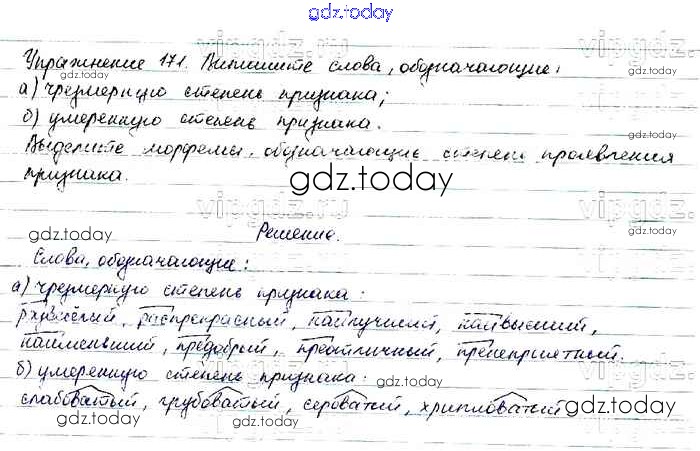 gdz.today
Упражнение 171. Выпишите слова, обозначающие:
а) чрезмерную степень признака;
б) умеренную степень признака.
Выделите морфемы, обозначающие степень проявления
признака.
gdz.today
Решение.
Слова, обозначающие:
а) чрезмерную степень признака:
развесёлый, распрекрасный, наилучший, наивысший,
наименьший, предобрый, преотличный, пренеприятный.
б) умеренную степень признака:
слабоватый, грубоватый, сероватый, хрипловатый
gdz.today